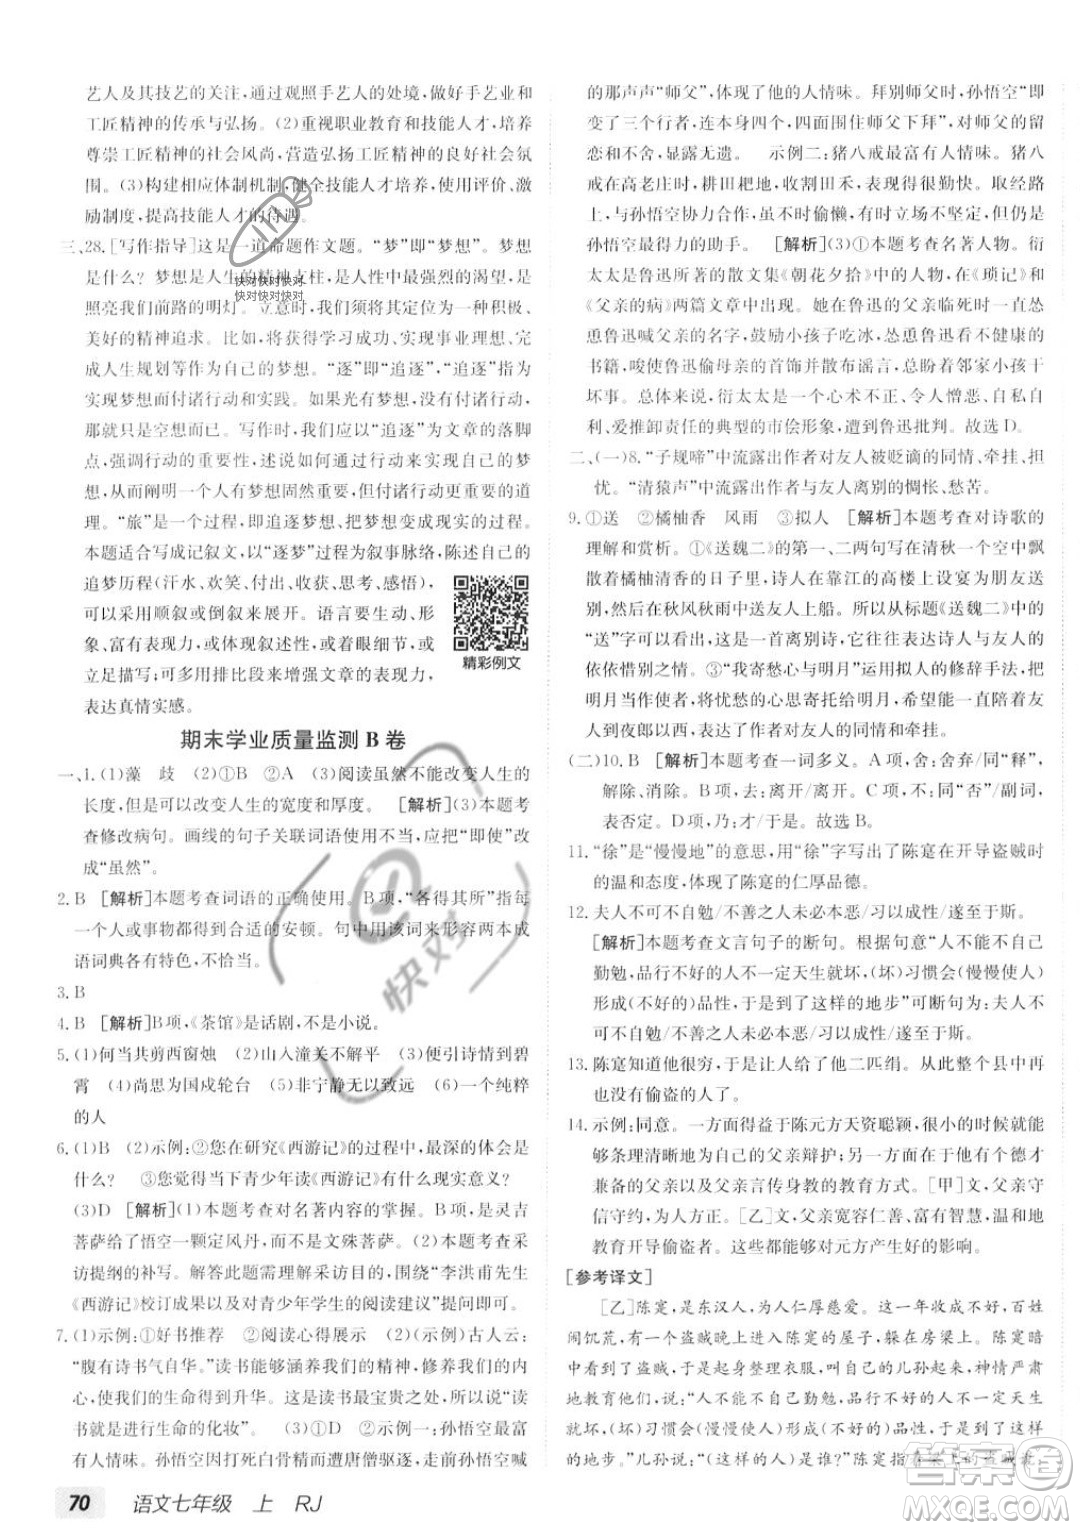 艺人及其技艺的关注，通过观照手艺人的处境，呼吁全社会
工匠精神的传承与弘扬。(2)重视职业教育和技能人才培养，
尊崇工匠精神的社会风尚，营造弘扬工匠精神的良好社会氛
围。(3)构建相应体制机制，健全技能人才培养，使用评价、激
励制度，提高技能人才的待遇。
三、28.[写作指导]这是一道命题作文题。“梦”即“梦想”。梦想
是什么？梦想是人生的精神支柱，是人性中最强烈的渴望，是
照亮我们前路的明灯。立意时，可以将其定位为一种积极、
美好的精神追求。比如，将获得优异的学业、实现事业理想、完
成人生规划等视为自己的梦想。“逐”即“追逐”，“追逐”意味
着为了梦想而付诸行动和实践。如果光有梦想，不付诸行动，
那就只是空想而已。写作时，我们应以“追逐”为文章的切入
点，强调行动的必要性，结合自己或身边人的经历来谈论梦
想，从而阐明一个人有梦想固然重要，但付诸行动更重要的道
理。“旅”是一个过程，即追逐梦想、把梦想变成现实的过程。
本题适合写成记叙文，以“逐梦”为叙事脉络，陈述自己的
追梦历程(汗水、欢笑、付出、收获、思考、感悟)，
可以采用顺叙或者倒叙来展开。语言要力求形
象，富有表现力，做到以情动人；或着眼细节，或
立足描写；可巧设对比段来增强文章的表现力，
表达真情实感。
精彩例文
期末学业质量监测 B 卷
一、1.(1)藻 歧 (2)①B ②A (3)阅读虽然不能改变人生的
长度，但可以改变人生的宽度和厚度。 [解析](3)本题考
查修改病句。画线的句子关联词语使用不当，应把“即使”改
成“虽然”。
2.B [解析]本题考查词语的正确使用。B项，“各得其所”指每
一个人或事物都得到合适的安顿。句中用该词来形容两本成
语词典各有特色，不恰当。
3.B
4.B [解析]B项，《茶馆》是话剧，不是小说。
5.(1)何当共剪西窗烛 (2)山入潼关不解平 (3)便引诗情到碧
霄 (4)尚思为国戍轮台 (5)非宁静无以致远 (6)一个纯粹
的人
6.(1)B (2)示例：②您在研究《西游记》的过程中，最深的体会是
什么？ ③您觉得当下青少年读《西游记》有什么现实意义？
(3)D [解析](1)本题考查对名著内容的掌握。B项，是灵吉
菩萨给了悟空一颗定风丹，而不是文殊菩萨。(2)本题考查采
访提纲的补写。解答此题需理解采访的目的，围绕“李洪甫先生
《西游记》校订成果以及对青少年学生的阅读建议”提问即可。
7.(1)示例：①好书推荐 ②阅读心得展示 (2)示例：古人云：
“腹有诗书气自华。”读书能够涵养我们的精神，修养我们的身
心，使我们的生命得到升华。这是读书最宝贵之处，因此说“读
书就是进行生命的化妆”。 (3)①D ②示例一：孙悟空最富
有人情味。孙悟空因打死白骨精而遭唐僧驱逐，最后孙悟空喊
的那声声“师父”，重现了他的人情味。拜别师父时，孙悟空“即
变了三个行者，连本身四个，四面围住师父下拜”，对师父的留
恋不舍，显露无遗。 示例二：猪八戒最富有人情味。猪八
戒在高老庄时，耕田耙地，收割田禾，表现得很勤快。取经路
上，与孙悟空协力合作，虽有时偷懒，有时意志不坚定，但仍是
孙悟空最得力的助手。 [解析](3)①本题考查名著人物。衍
太太是鲁迅所著的散文集《朝花夕拾》中的人物，在《琐记》和
《父亲的病》两篇文章中出现。她在鲁迅的父亲临死时一直怂
恿鲁迅喊父亲的名字，鼓励小孩子吃冰，怂恿鲁迅看不健康的
书籍，唆使鲁迅偷母亲的首饰并散布谣言，甚至怂恿邻家小孩干
坏事。总体来看，衍太太是一个心术不正、令人憎恶、自私自利、
多管闲事却推卸责任的典型的市侩形象，遭到鲁迅批判。故选D。
二、(一)8.“子规啼”中流露出作者对友人被贬谪的同情、牵挂、担
忧。“清猿声”中流露出作者与友人离别的惆怅、愁苦。
9.①送 ②橘柚香 风雨 ③拟人 [解析]本题考查对诗歌的
理解和赏析。①《送魏二》的第一、二两句写在清秋一个空中飘
散着橘柚清香的日子里，诗人在靠江的高楼上设宴为朋友送
别，然后在秋风秋雨中送友人上船。所以从标题《送魏二》中的
“送”字可以看出，这是一首离别诗，它往往表达诗人与友人的
依依惜别之情。③“我寄愁心与明月”运用拟人的修辞手法，把
明月当作使者，将忧愁的心思寄托给明月，希望能一直陪着友人
到夜郎以西，表达了作者对友人的同情和牵挂。
(二)10.B [解析]本题考查一词多义。A项，舍：舍弃/同“释”，
解除、消除。B项，去：离开/离开。C项，不：同“否”/副词，
表否定。D项，乃：于是，就/是。故选B。
11.“徐”是“慢慢地”的意思，用“徐”字写出了陈寔在开导盗贼时
的温和态度，体现了陈寔的仁厚品德。
12.夫人不可不自勉/不善之人未必本恶/习以成性/遂至于斯。
[解析]本题考查文言句子的断句。根据句意“人不能不自己
勤勉，不善良的人不一定天生就坏，(坏)习惯会(慢慢使人)
形成(不好的)品性，于是到了这样的地步”可断句为：夫人不
可不自勉/不善之人未必本恶/习以成性/遂至于斯。
13.陈寔知道他很穷，于是送给了他二匹绢。从此整个县中再
也没有偷盗的人了。
14.示例：同意。一方面得益于陈元方天资聪颖，很小的时候就能
条理清晰地为自己的父亲辩护；另一方面得益于他有个德才
兼备的父亲以及父亲言传身教的教育方式。[甲]文，父亲守
信守约，为人正直。[乙]文，父亲宽容仁善，富有智慧，温和地
教育开导偷盗者。这些都能够对元方产生好的影响。
[参考译文]
[乙]陈寔，是东汉人，为人仁厚慈爱。这一年收成不好，百姓
闹饥荒，有一个盗贼晚上进入陈寔的屋子，躲在房梁上。陈寔暗
中看到了盗贼，于是起身整理衣服，叫来自己的儿孙，神情严肃
地教育他们，说：“人不能不自己勤勉，品行不好的人不一定天生
就坏，(坏)习惯会(慢慢使人)形成(不好的)品性，于是到了这样
的地步。”儿孙说：
70 语文七年级 上 RJ
快对快对快对
快对快对快对
快对
答案圈
MXQE.COM